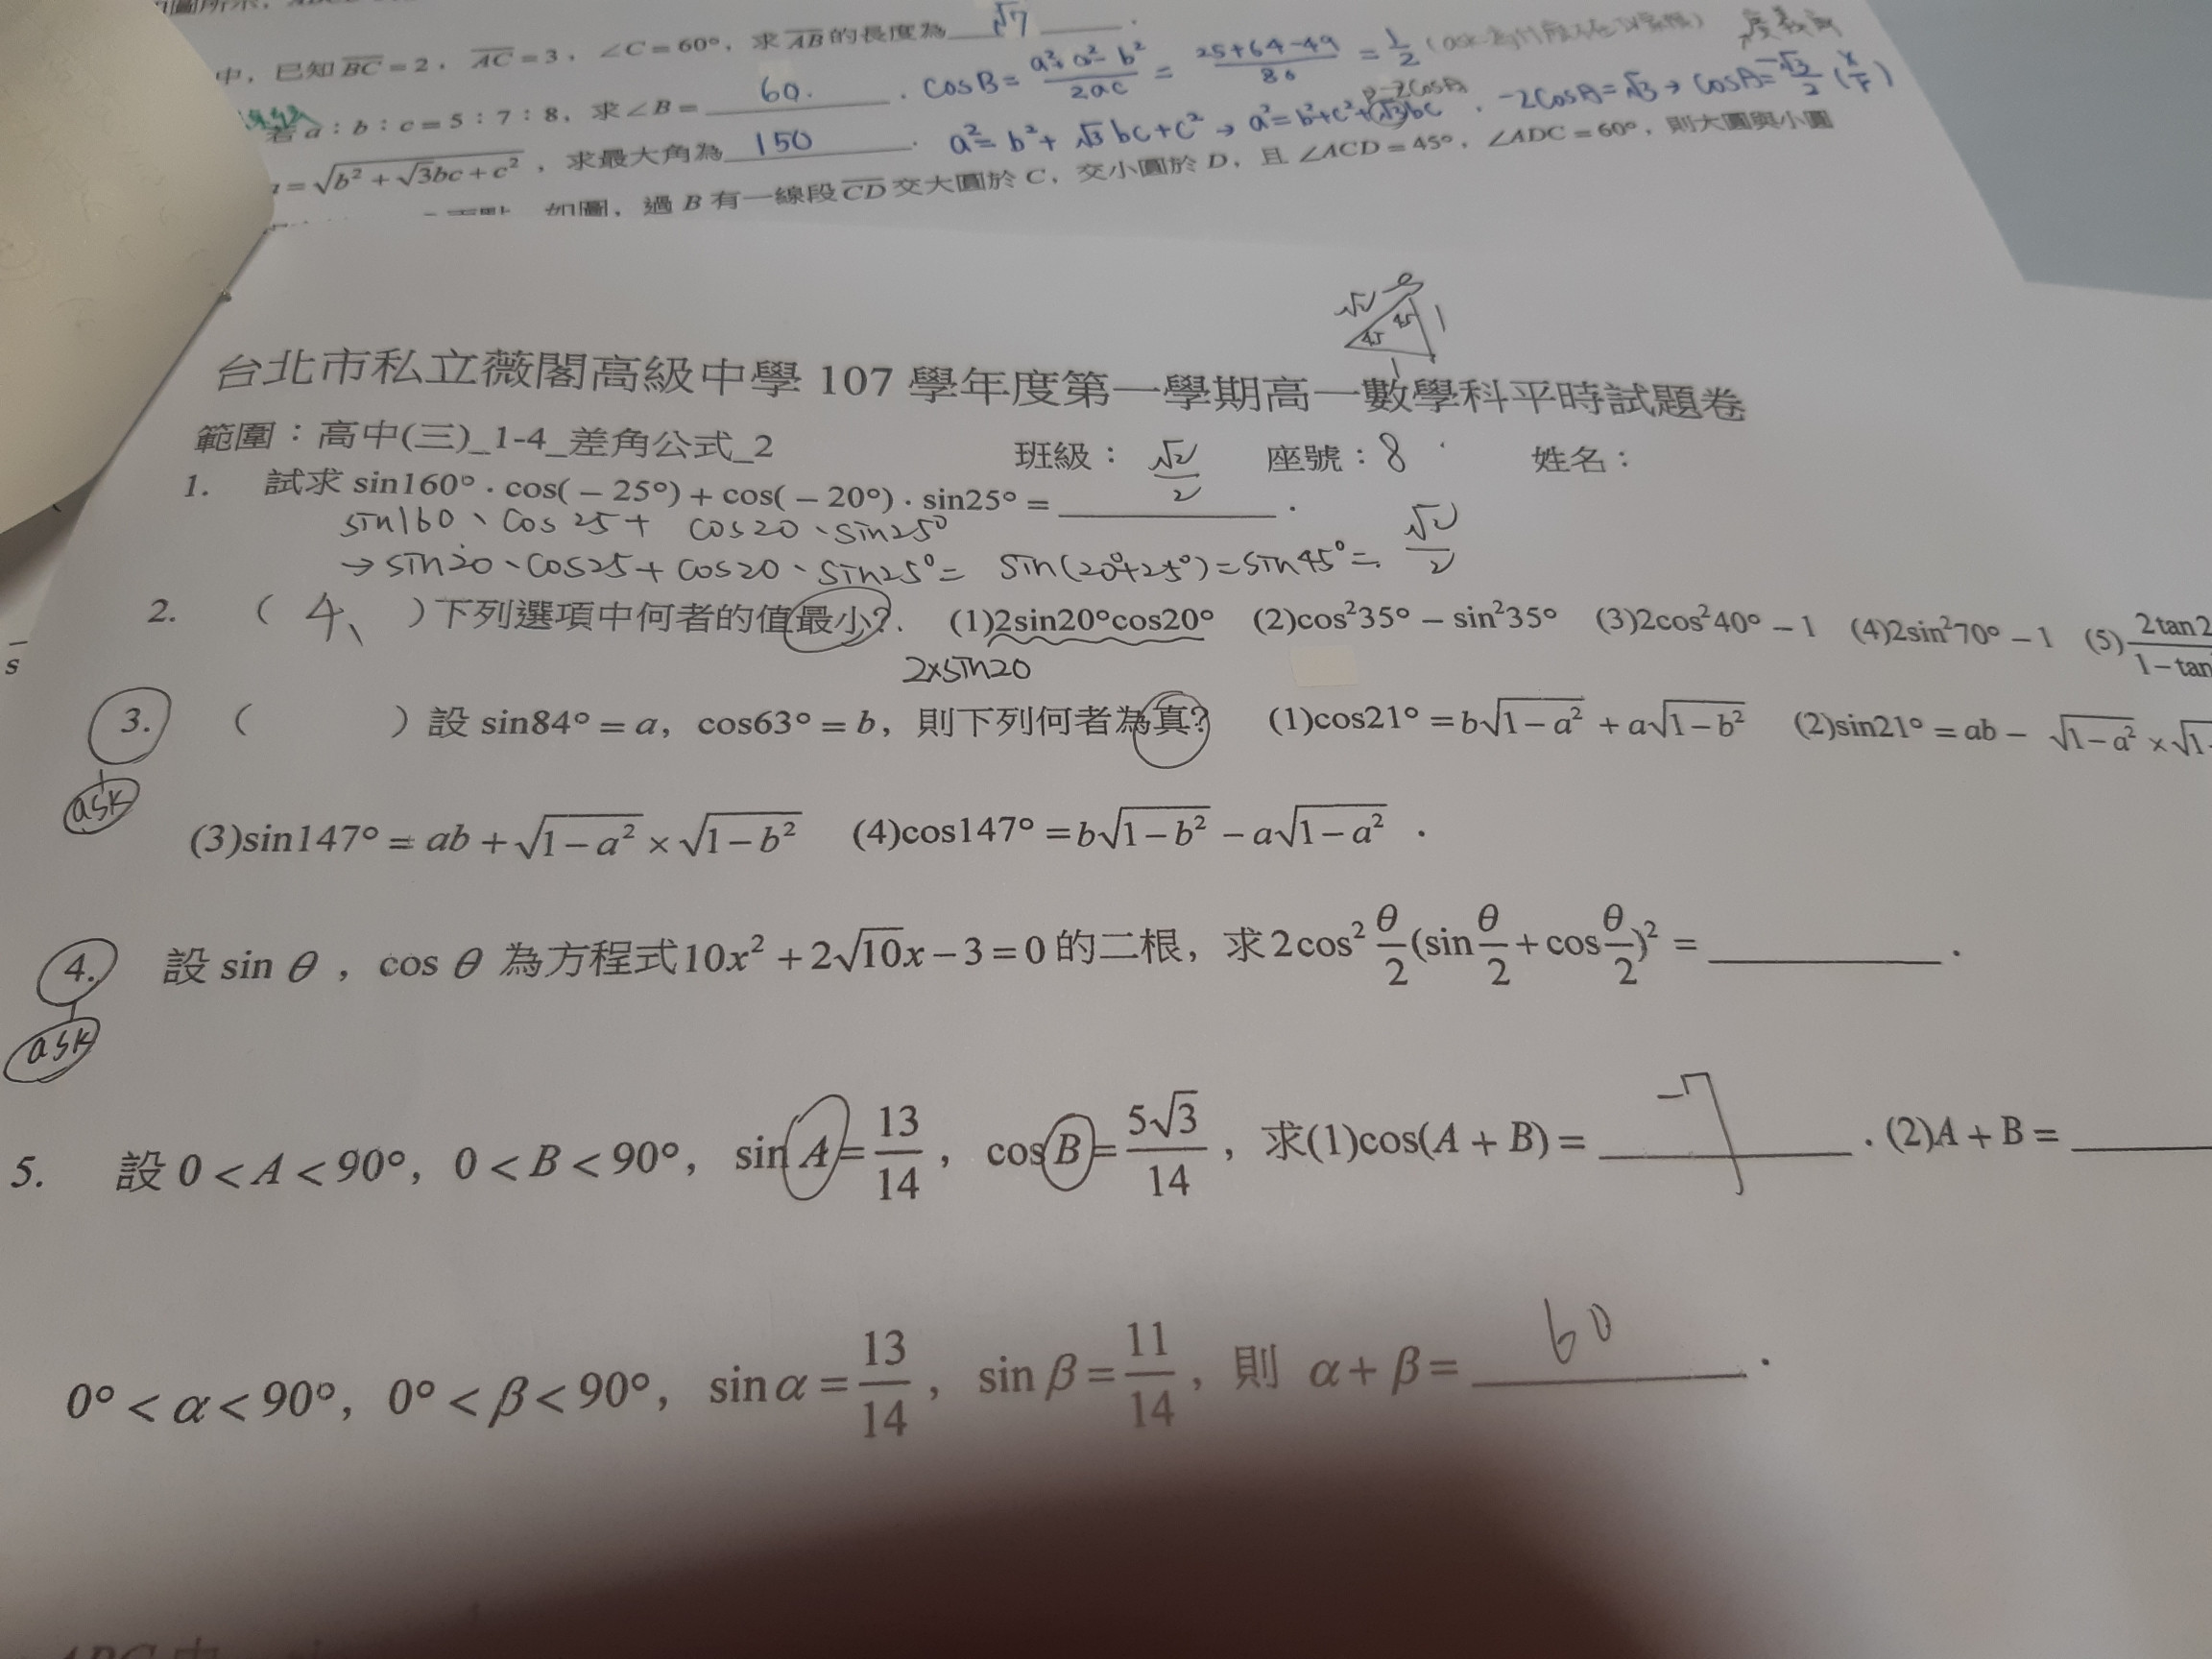 中，已知 BC = 2，AC = 3，∠C = 60°，求 AB 的長度為 √7 .
若 a : b : c = 5 : 7 : 8，求∠B = 60. . cosB = (a²+c²-b²)/2ac = (25+64-49)/80 = 1/2
= √(b² + √3bc + c²)，求最大角為 150 . a² = b² + √3 bc + c² → a² = b² + c² + √3bc . -2cosA = √3 → cosA = -√3/2
如圖，過 B 有一線段 CD 交大圓於 C，交小圓於 D，且 ∠ACD = 45°，∠ADC = 60°，則大圓與小圓
√2 45 45 1 1
台北市私立薇閣高級中學 107 學年度第一學期高一數學科平時試題卷
範圍：高中(三)_1-4_差角公式_2 班級： √2/2 座號：8 姓名：
1. 試求 sin160° · cos( − 25°) + cos( − 20°) · sin25° = ________ .
sin160、cos25 + cos20、sin25°
→ sin20、cos25 + cos20、sin25° = sin(20°+25°) = sin45° = √2/2
2. ( 4、 )下列選項中何者的值最小？. (1)2sin20°cos20° (2)cos²35° − sin²35° (3)2cos²40° − 1 (4)2sin²70° − 1 (5) 2tan2 / 1 − tan
2×sin20
3. ( )設 sin84° = a，cos63° = b，則下列何者為真？ (1)cos21° = b√(1−a²) + a√(1−b²) (2)sin21° = ab − √(1−a²) × √1
ask
(3)sin147° = ab + √(1−a²) × √(1−b²) (4)cos147° = b√(1−b²) − a√(1−a²) .
4. 設 sin θ ，cos θ 為方程式 10x² + 2√10x − 3 = 0 的二根，求 2cos² θ/2 (sin θ/2 + cos θ/2)² = ________ .
ask
5. 設 0 < A < 90°，0 < B < 90°，sin A = 13/14，cos B = 5√3/14，求(1)cos(A + B) = -7 . (2)A + B = ________
0° < α < 90°，0° < β < 90°，sin α = 13/14，sin β = 11/14，則 α + β = 60 .